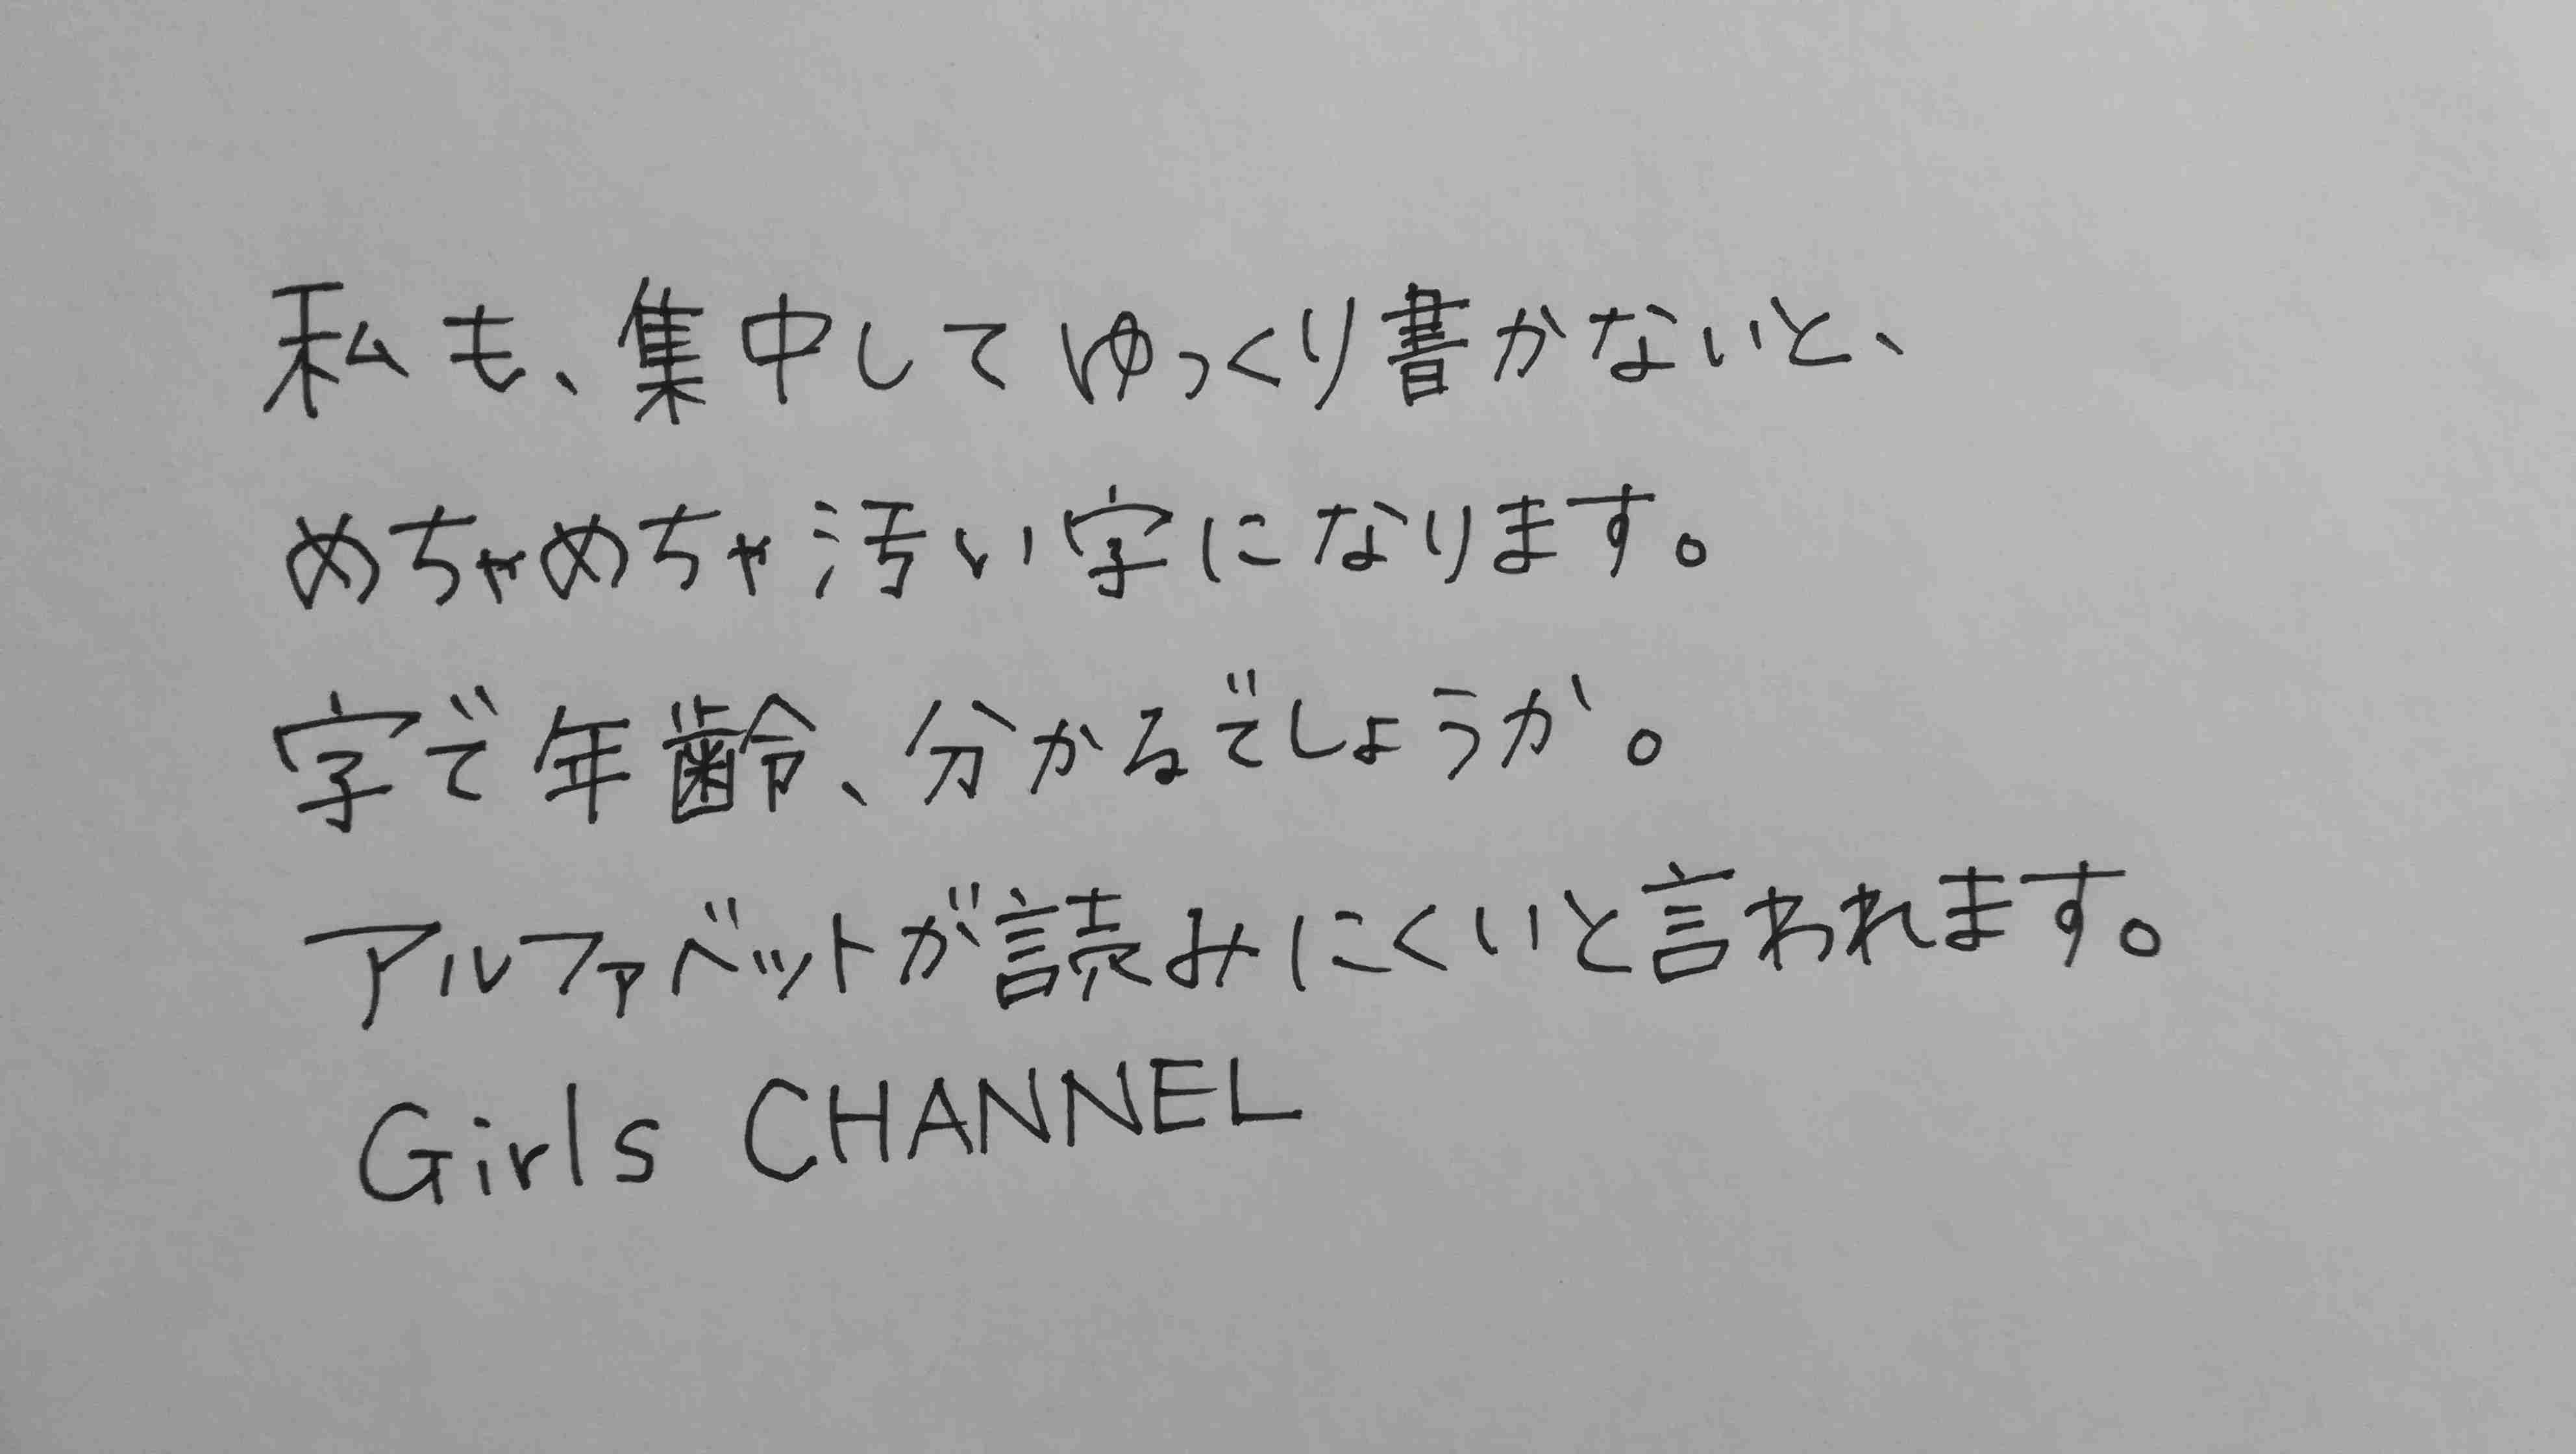 私も、集中してゆっくり書かないと、
めちゃめちゃ汚い字になります。
字で年齢、分かるでしょうか。
アルファベットが読みにくいと言われます。
Girls CHANNEL